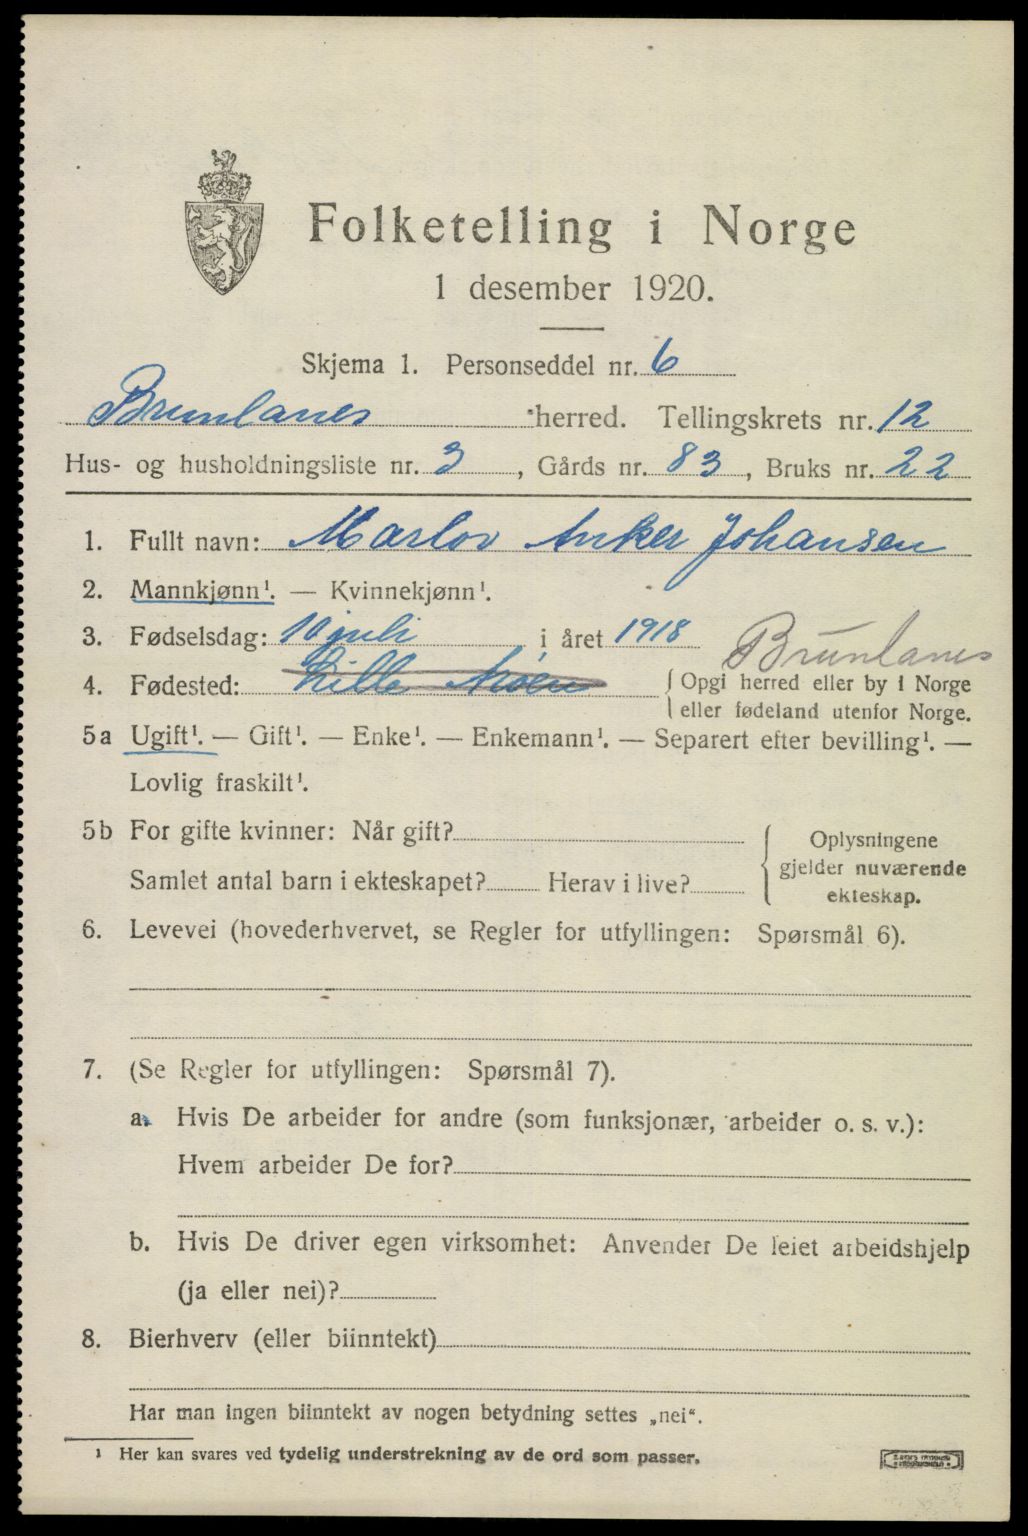 Folketelling i Norge
1 desember 1920.
Skjema 1. Personseddel nr. 6
Brunlanes herred. Tellingskrets nr. 12
Hus- og husholdningsliste nr. 3, Gårds nr. 83, Bruks nr. 22
1. Fullt navn: Marlov Anker Johansen
2. Mannkjønn¹. — Kvinnekjønn¹.
3. Fødselsdag: 10 juli i året 1918
Brunlanes
4. Fødested: Lille { Opgi herred eller by i Norge
eller fødeland utenfor Norge.
5a Ugift¹. — Gift¹. — Enke¹. — Enkemann¹. — Separert efter bevilling¹. —
Lovlig fraskilt¹.
5b For gifte kvinner: Når gift?
Samlet antal barn i ekteskapet? Herav i live?
{ Oplysningene
gjelder nuværende
ekteskap.
6. Levevei (hovederhvervet, se Regler for utfyllingen: Spørsmål 6).
7. (Se Regler for utfyllingen: Spørsmål 7).
a. Hvis De arbeider for andre (som funksjonær, arbeider o. s. v.):
Hvem arbeider De for?
b. Hvis De driver egen virksomhet: Anvender De leiet arbeidshjelp
(ja eller nei)?
8. Bierhverv (eller biinntekt)
Har man ingen biinntekt av nogen betydning settes „nei“.
¹ Her kan svares ved tydelig understrekning av de ord som passer.